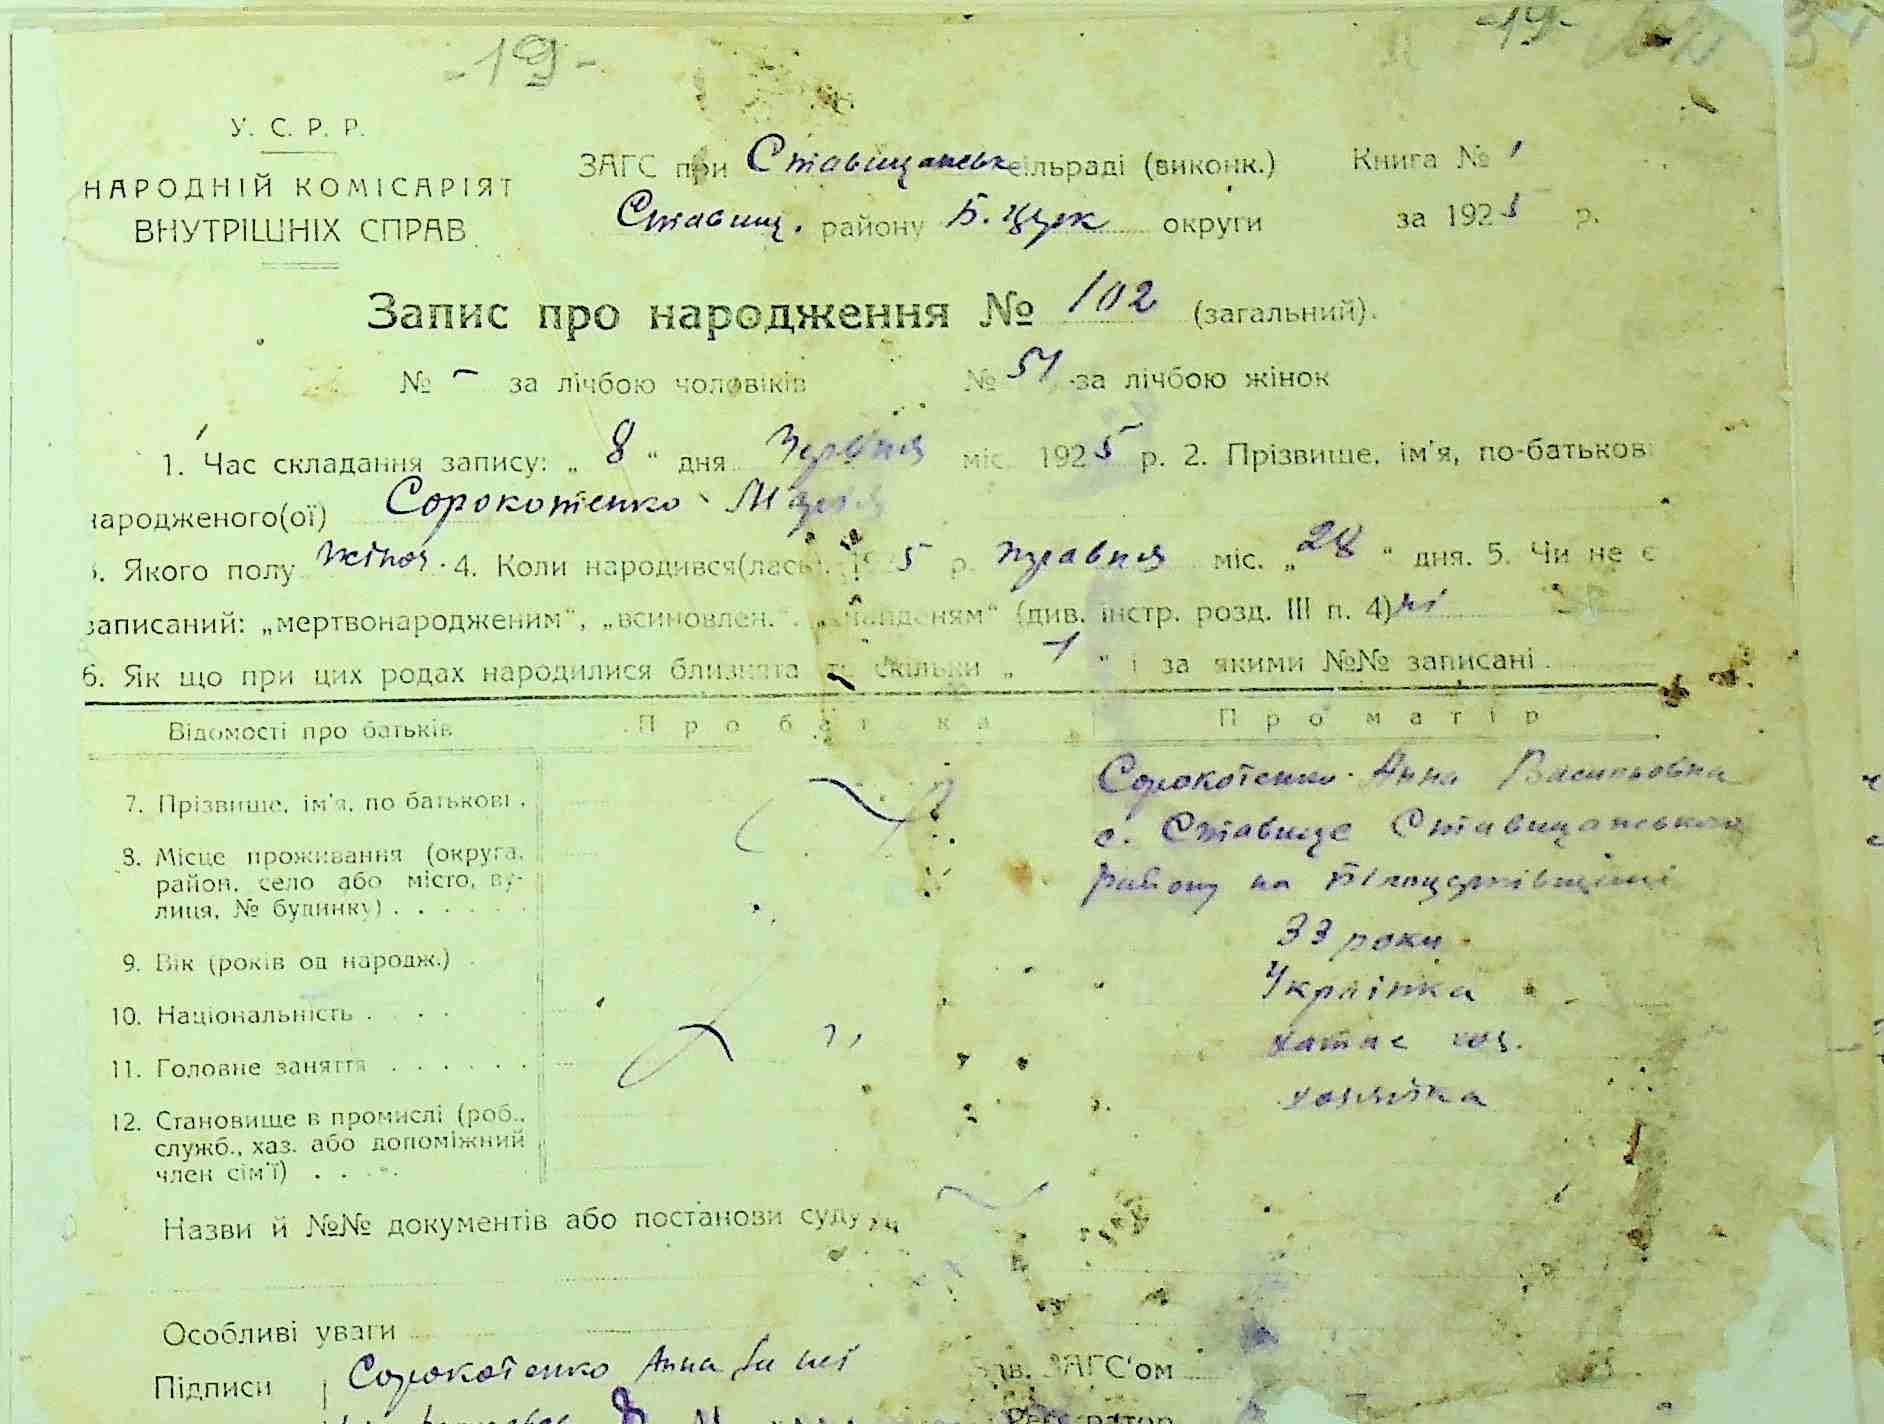 -19- -19-
У. С. Р. Р.
НАРОДНІЙ КОМІСАРІЯТ
ВНУТРІШНІХ СПРАВ
ЗАГС при Ставищанськ сільраді (виконк.) Книга № 1
Ставищ. району Б. Церк округи за 1925 р.
Запис про народження № 102 (загальний).
№ – за лічбою чоловіків № 51 за лічбою жінок
1. Час складання запису: „ 8 “ дня Серпня міс. 1925 р. 2. Прізвище, ім'я, по-батькові
народженого(ої) Сорокотенко Марія
3. Якого полу жіноч. 4. Коли народився(лась). 1925 р. травня міс. „ 28 “ дня. 5. Чи не є
записаний: „мертвонародженим“, „всиновлен.“, „знайденям“ (див. інстр. розд. III п. 4) ні
6. Як що при цих родах народилися близнята то скільки „ 1 “ і за якими №№ записані
Відомості про батьків Про батька Про матір
7. Прізвище, ім'я, по батькові . Сорокотенко Анна Васильовна
8. Місце проживання (округа, с. Ставище Ставищанського
район, село або місто, ву- району на Білоцерківщині
лиця, № будинку) . . . . . .
9. Вік (років од народж.) . 33 роки
10. Національність . . . . Українка
11. Головне заняття . . . . . . хатнє
12. Становище в промислі (роб., хазяйка
служб., хаз. або допоміжний
член сім'ї) . . . .
Назви й №№ документів або постанови суду
Особливі уваги
Підписи Сорокотенко Анна Зав. ЗАГС'ом
Реєстратор